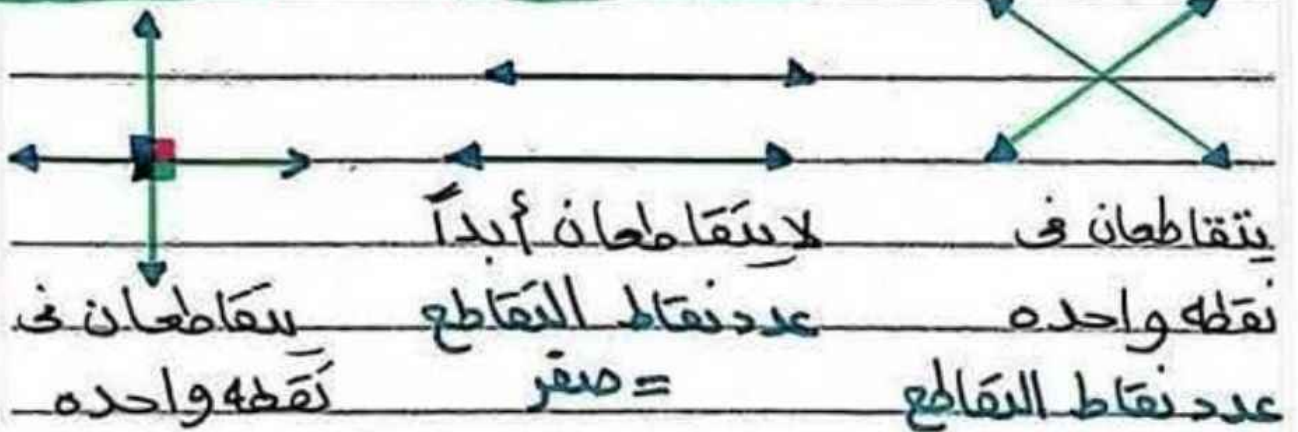 يتقاطعان فى
نقطه واحده
عدد نقاط التقاطع
لا يتقاطعان أبداً
عدد نقاط التقاطع
= صفر
يتقاطعان فى
نقطه واحده